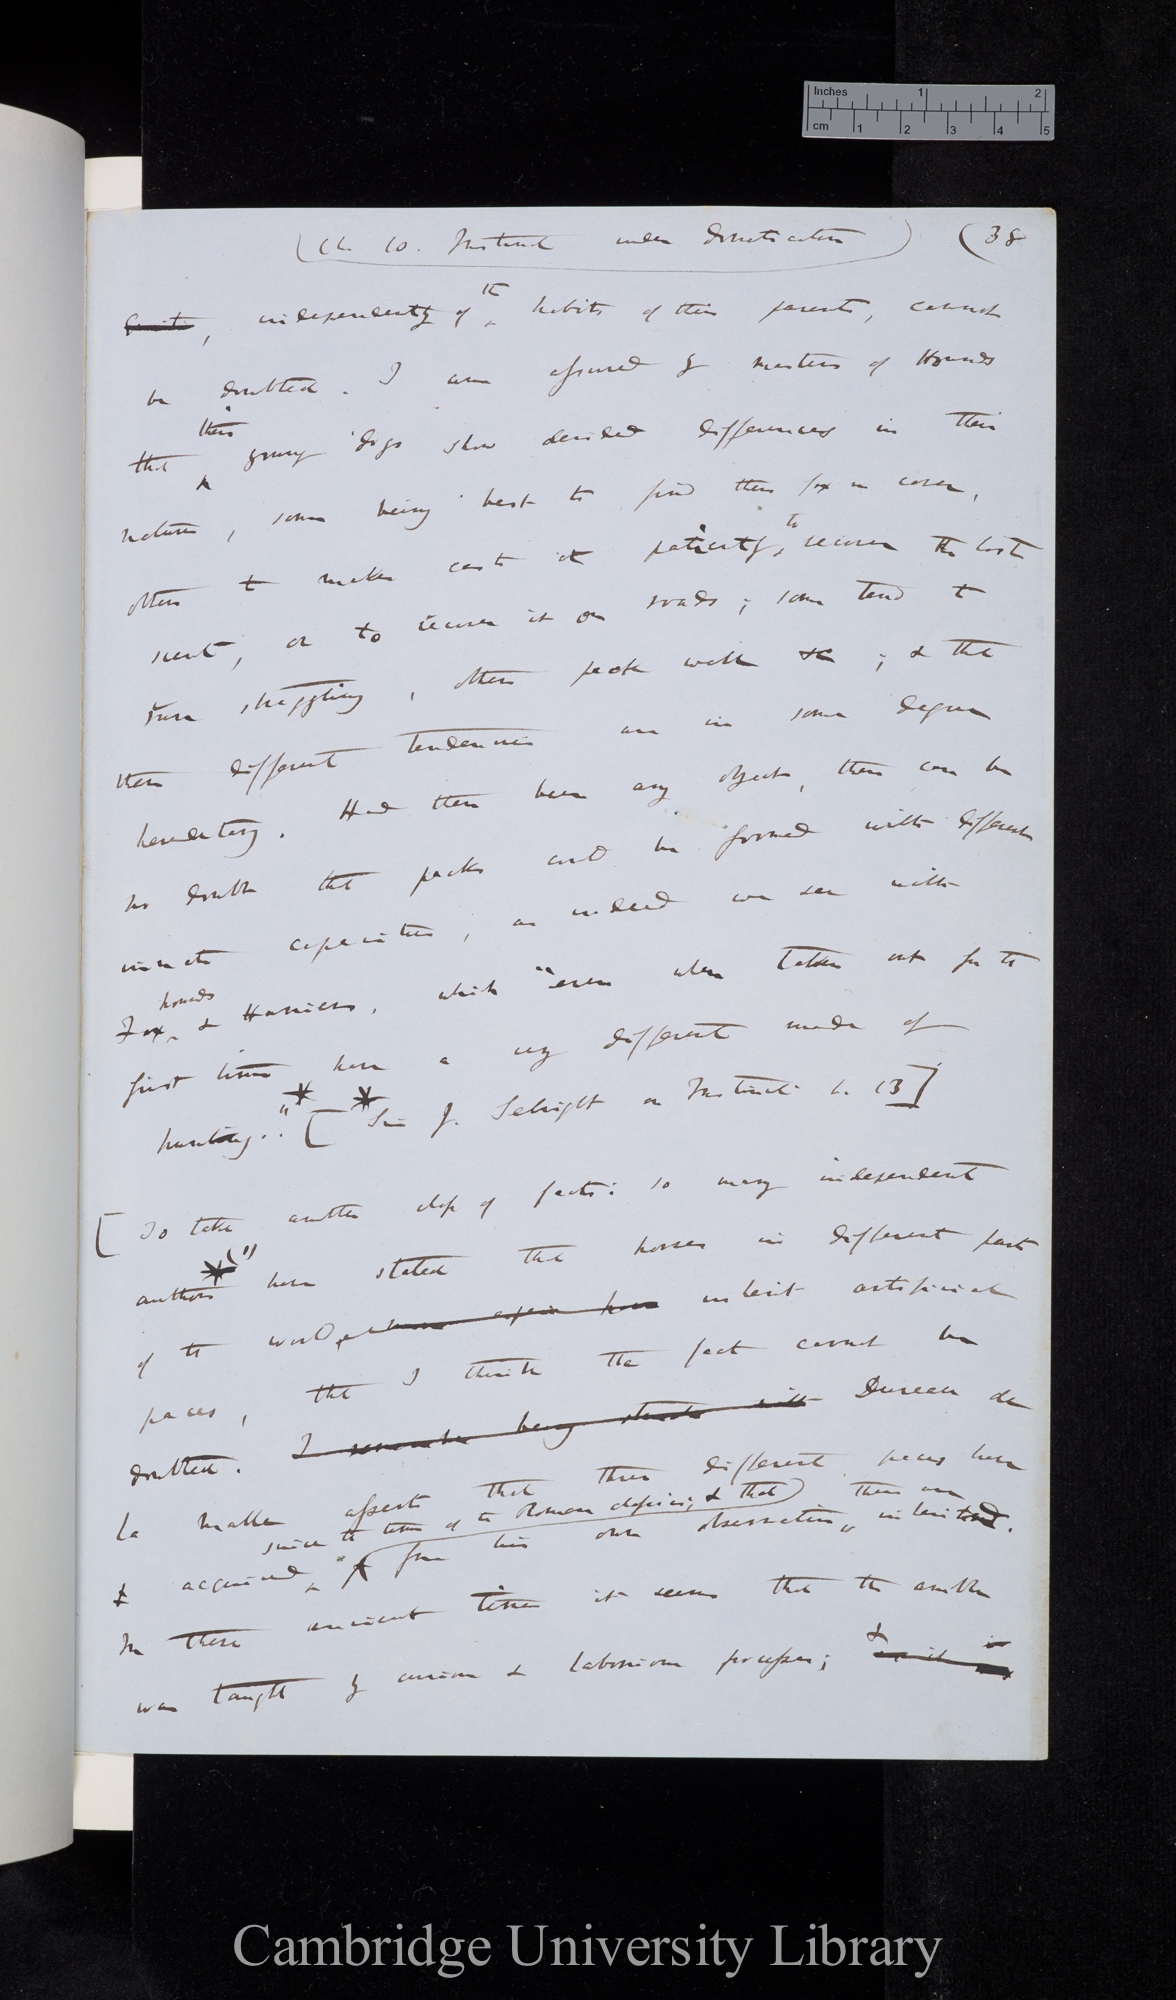 Inches 1 2
cm 1 2 3 4 5
(Ch 10. Instinct under domestication) (38
, independently of the habits of their parents, cannot
be doubted. I am assured by masters of Hounds
that their young dogs show decided differences in their
nature, some being best to find their fox in cover,
others to make casts & patiently to recover the lost
scent, or to recover it on roads; some tend to
run straggling, others pack well; & that
these different tendencies are in some degree
hereditary. Had there been any object, there can be
no doubt that packs could be formed with different
innate capacities, as indeed we see with
Fox hounds & Harriers, which "even when taken out for the
first time have a very different mode of
hunting."* [* Sir J. Sebright on Instinct p. 13]
[To take another class of facts: so many independent
authors*(1) have stated that horses in different parts
of the world, inherit artificial
paces, that I think the fact cannot be
doubted. I remember being struck with Dureau de
la Malle asserts that these different paces have
since the time of the Roman classics, & that
& acquired from his own observation, they are inherited.
In these ancient times it seems that the amble
was taught by curious & laborious processes; &
Cambridge University Library